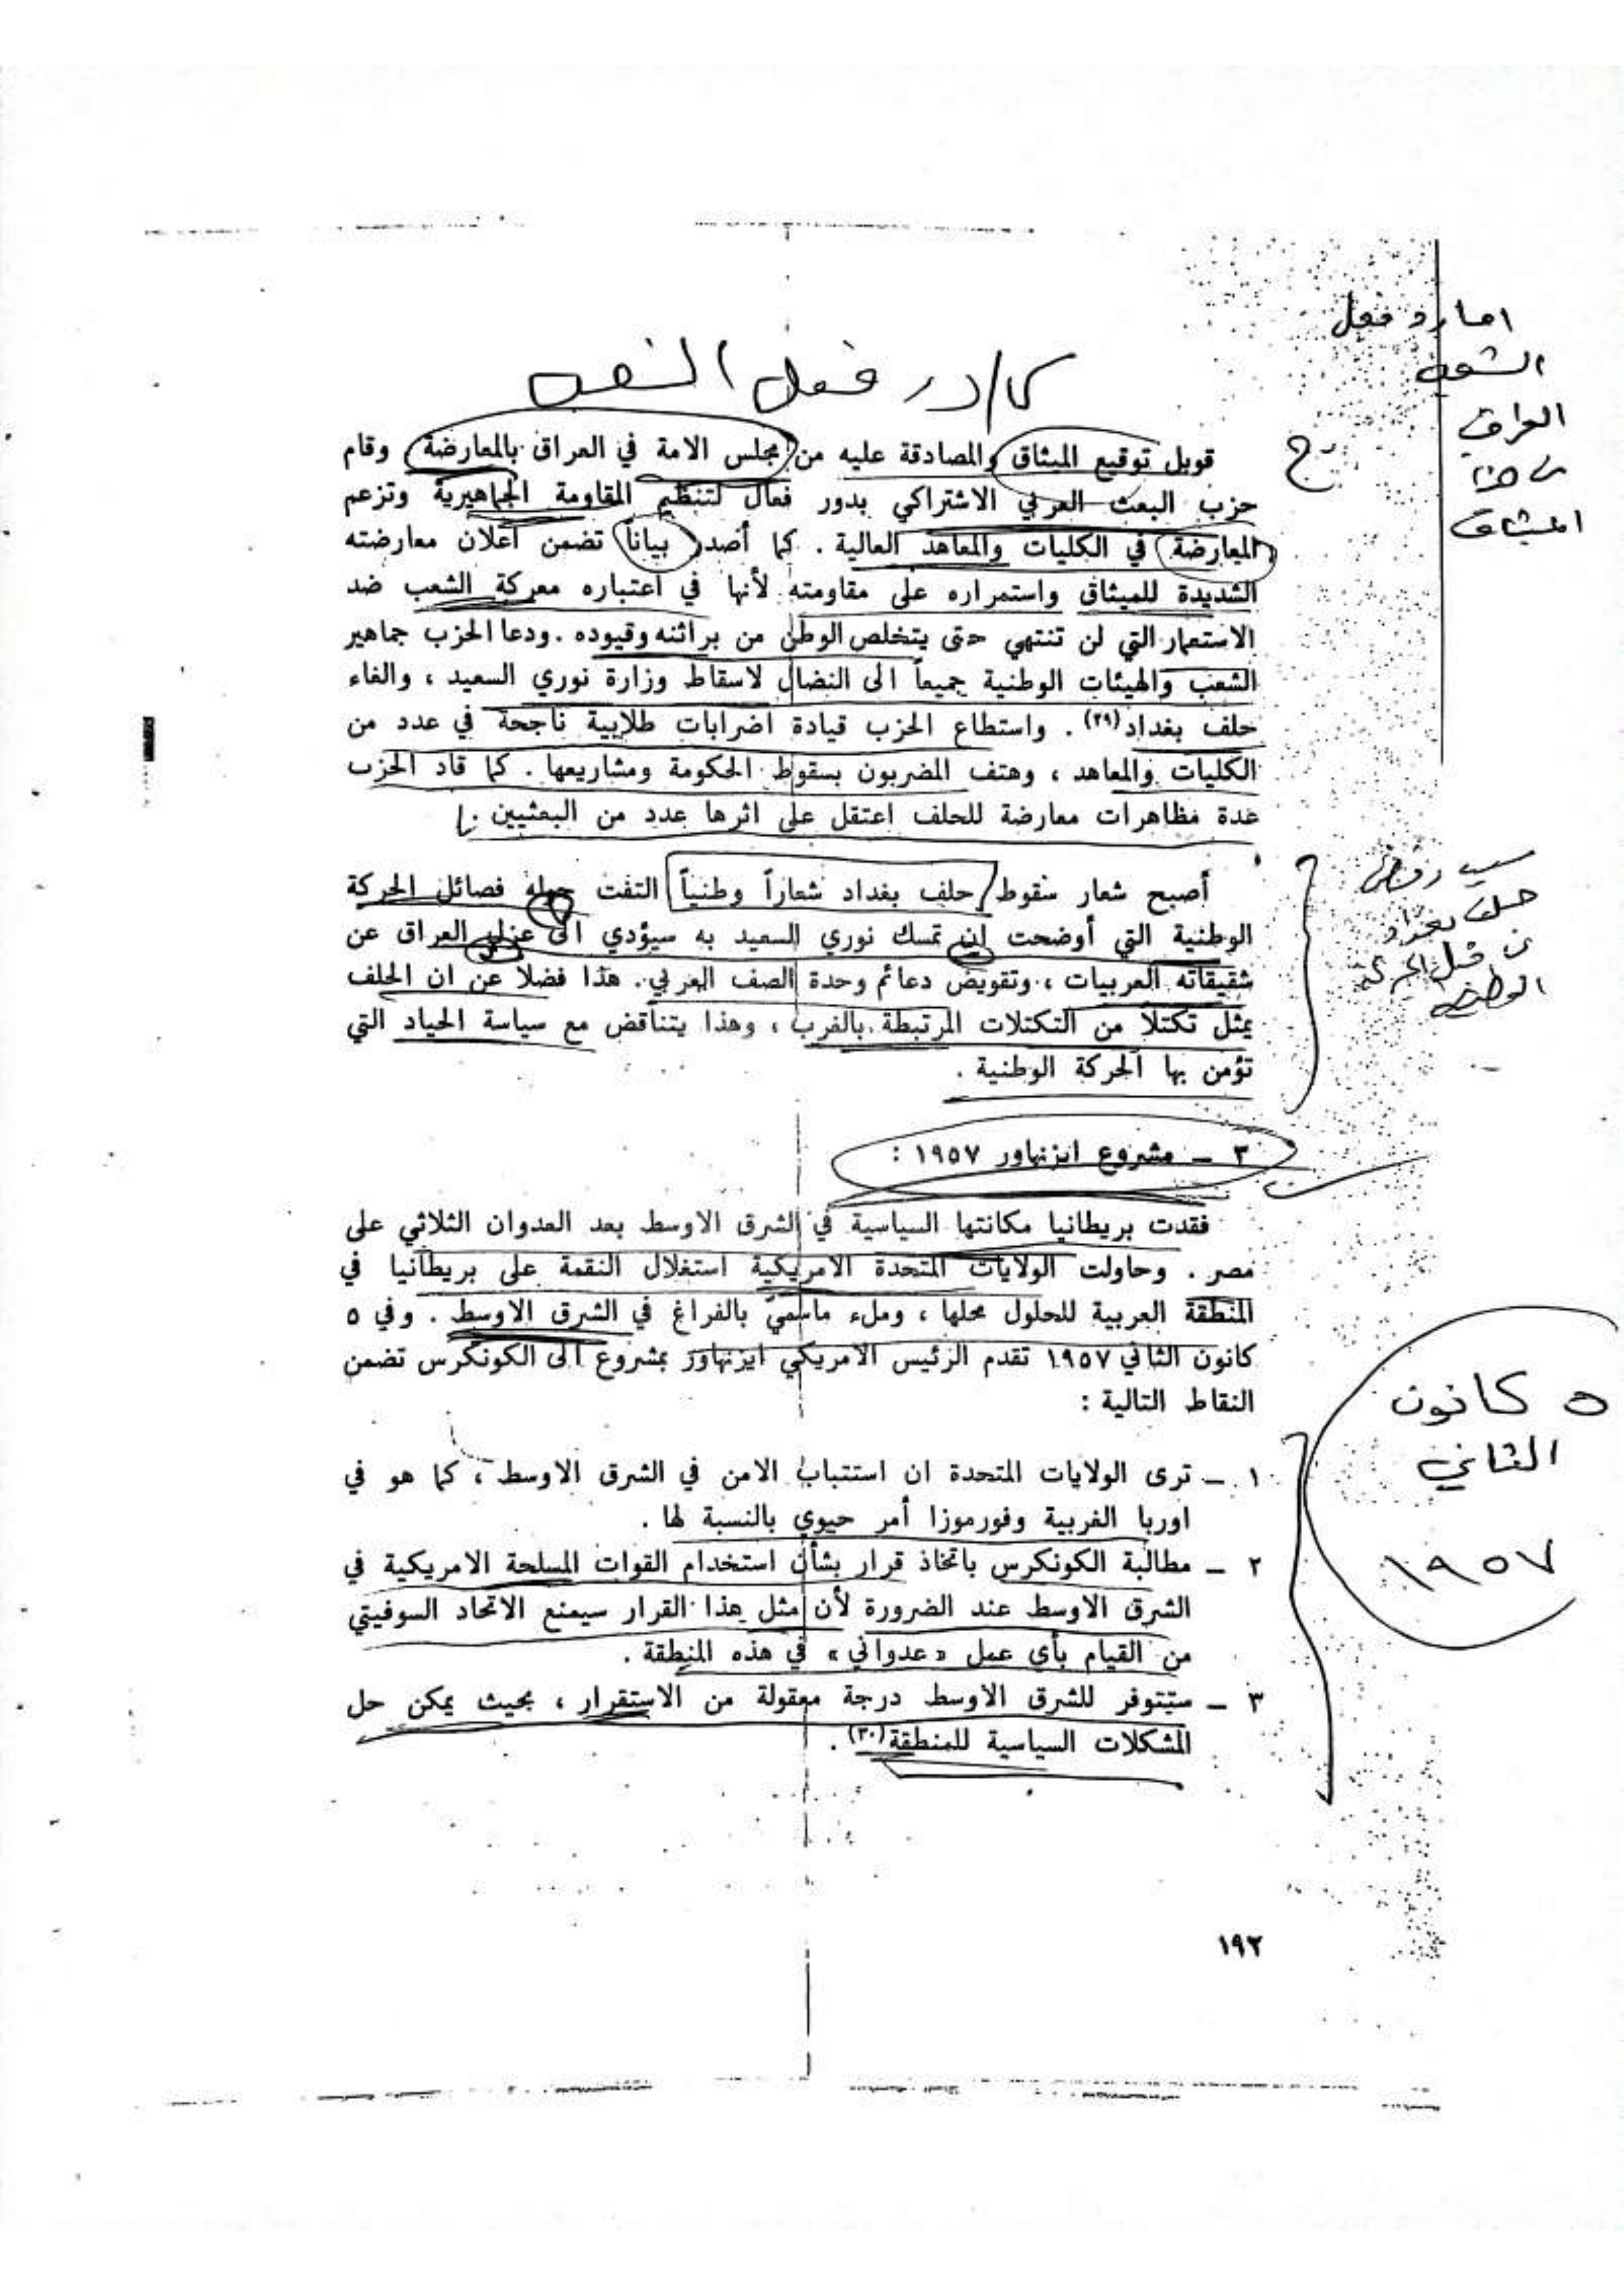 فعل
قوبل توقيع الميثاق والمصادقة عليه من مجلس الامة في العراق بالمعارضة وقام
حزب البعث العربي الاشتراكي بدور فعال لتنظيم المقاومة الجماهيرية وتزعم
المعارضة في الكليات والمعاهد العالية . كما أصدر بياناً تضمن أعلان معارضته
الشديدة للميثاق واستمراره على مقاومته لأنها في اعتباره معركة الشعب ضد
الاستعمار التي لن تنتهي حتى يتخلص الوطن من براثنه وقيوده . ودعا الحزب جماهير
الشعب والهيئات الوطنية جميعاً الى النضال لاسقاط وزارة نوري السعيد ، والغاء
حلف بغداد(٢٩) . واستطاع الحزب قيادة اضرابات طلابية ناجحة في عدد من
الكليات والمعاهد ، وهتف المضربون بسقوط الحكومة ومشاريعها . كما قاد الحزب
عدة مظاهرات معارضة للحلف اعتقل على اثرها عدد من البعثيين .
أصبح شعار سقوط حلف بغداد شعاراً وطنياً التفت حوله فصائل الحركة
الوطنية التي أوضحت ان تمسك نوري السعيد به سيؤدي الى عزل العراق عن
شقيقاته العربيات ، وتقويض دعائم وحدة الصف العربي . هذا فضلاً عن ان الحلف
يمثل تكتلاً من التكتلات المرتبطة بالغرب ، وهذا يتناقض مع سياسة الحياد التي
تؤمن بها الحركة الوطنية .
٣ ـ مشروع ايزنهاور ١٩٥٧ :
فقدت بريطانيا مكانتها السياسية في الشرق الاوسط بعد العدوان الثلاثي على
مصر . وحاولت الولايات المتحدة الامريكية استغلال النقمة على بريطانيا في
المنطقة العربية للحلول محلها ، وملء ماسمي بالفراغ في الشرق الاوسط . وفي ٥
كانون الثاني ١٩٥٧ تقدم الرئيس الامريكي ايزنهاور بمشروع الى الكونكرس تضمن
النقاط التالية :
١ ـ ترى الولايات المتحدة ان استتباب الامن في الشرق الاوسط ، كما هو في
اوربا الغربية وفورموزا أمر حيوي بالنسبة لها .
٢ ـ مطالبة الكونكرس باتخاذ قرار بشأن استخدام القوات المسلحة الامريكية في
الشرق الاوسط عند الضرورة لأن مثل هذا القرار سيمنع الاتحاد السوفيتي
من القيام بأي عمل « عدواني » في هذه المنطقة .
٣ ـ ستتوفر للشرق الاوسط درجة معقولة من الاستقرار ، بحيث يمكن حل
المشكلات السياسية للمنطقة(٣٠) .
١٩٢
فعل
العراق
الميثاق
سبب رفض
حلف بغداد
الوطنية
٥ كانون
الثاني
١٩٥٧